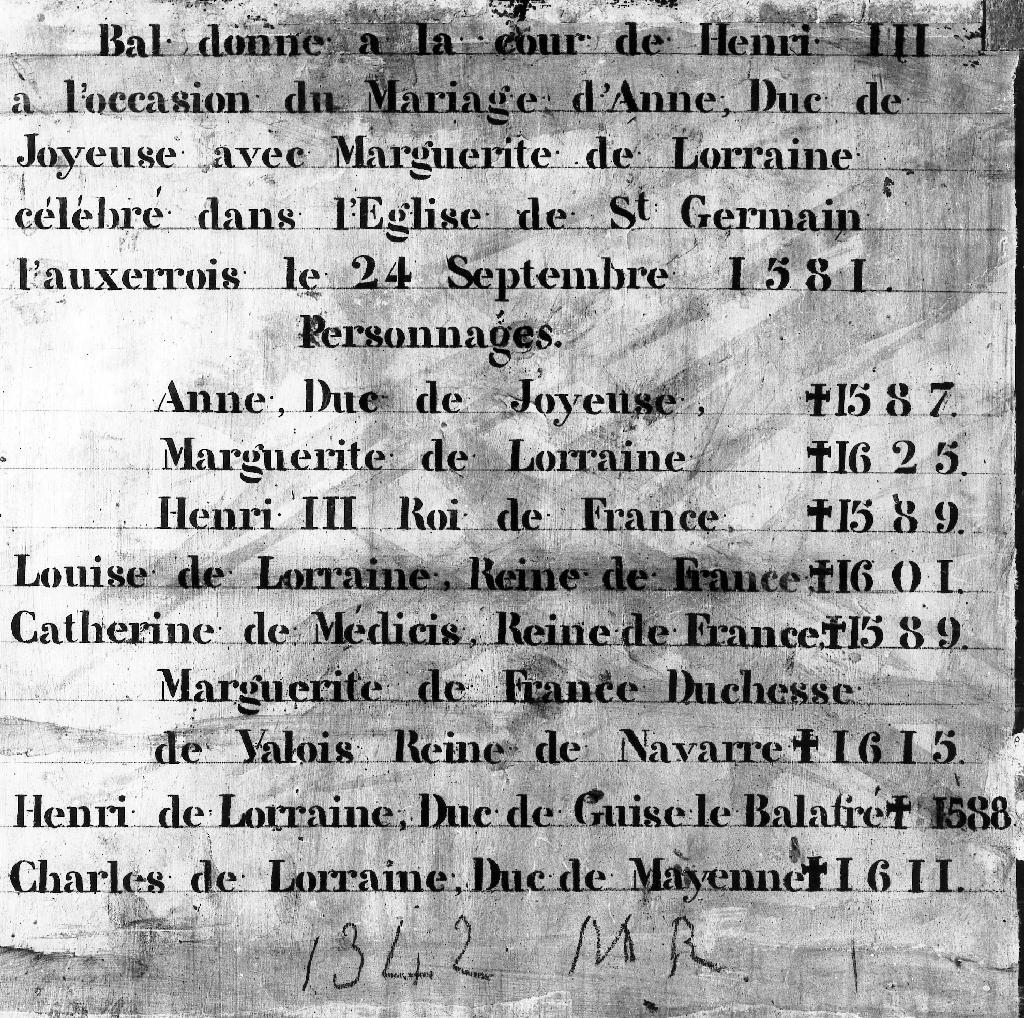 Bal donne a la cour de Henri III
a l'occasion du Mariage d'Anne, Duc de
Joyeuse avec Marguerite de Lorraine
célébré dans l'Eglise de St Germain
l'auxerrois le 24 Septembre 1581.
Personnages.
Anne, Duc de Joyeuse, ✝1587.
Marguerite de Lorraine ✝1625.
Henri III Roi de France. ✝1589.
Louise de Lorraine, Reine de France ✝1601.
Catherine de Médicis, Reine de France, ✝1589.
Marguerite de France Duchesse
de Valois Reine de Navarre ✝1615.
Henri de Lorraine, Duc de Guise le Balafré ✝ 1588
Charles de Lorraine, Duc de Mayenne ✝1611.
1342 MR.